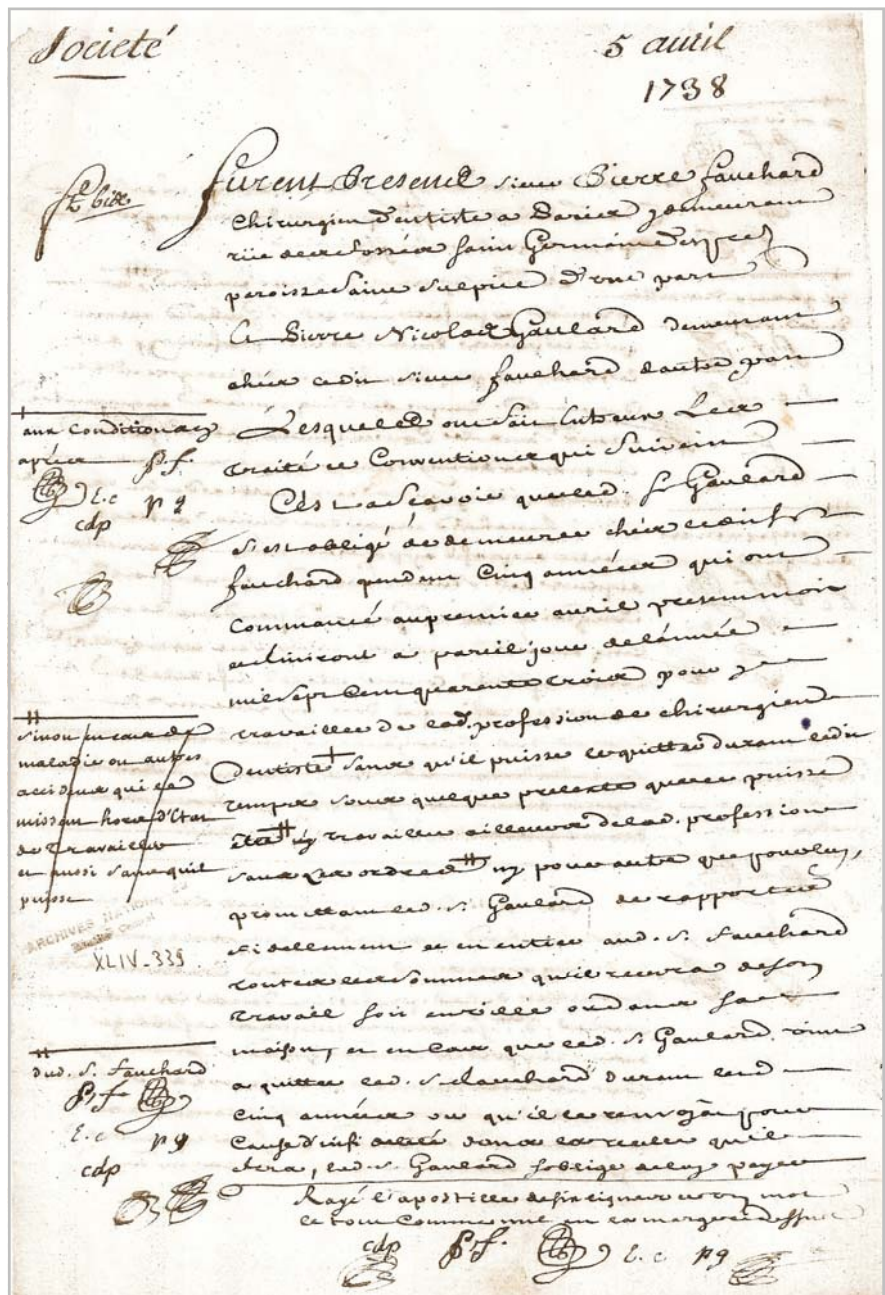 Societé
5 avril
1738
furent Presens sieur Pierre fauchard
Chirurgien Dentiste a Paris demeurant
rüe des fossés saint Germain des prez
paroisse Saint Sulpice d'une part
Et Pierre Nicolas Gaulard demeurant
chés cedit sieur fauchard dautre part
Lesquels ont fait entreux Les
traité et Conventions qui Suivent
C'est a Scavoir que led. Sr Gaulard
s'est obligé de demeurer chés ledit Sr
fauchard pendant Cinq années qui ont
Commancé au premier avril present mois
et finiront a pareil jour de lannée
mil sept Cent quarente trois pour
travailler de lad. profession de chirurgien
Dentiste sans qu'il puisse le quitter durant ledit
temps sous quelque pretexte que ce puisse
être ny travailler ailleurs de lad. profession
sans les ordres ny pour autre que pour luy,
promettant led. S. Gaulard de rapporter
fidellement et en entier aud. S. fauchard
toutes les sommes qu'il recevra de son
travail soit en ville ou dans sa
maison, et en Cas que led. S. Gaulard vint
a quitter led. S. fauchard durant lesd.
Cinq années ou qu'il le renvoyât pour
Cause d'infidelité dans les
fera, led. S. Gaulard s'oblige de luy payer
Rayé l'apostille de cinq lignes et un mot
le tout comme nul en la marge ci dessus
cdp P.f. L.c pg
aux Conditions cy
aprés P.f.
L.c pg
cdp
sinon en cas de
maladie ou autres
accidens qui le
missent hors d'Etat
de travailler
et aussi sans quil
puisse
ARCHIVES NATIONALES
XLIV-339
dud. S. Fauchard
P.f.
L.c pg
cdp